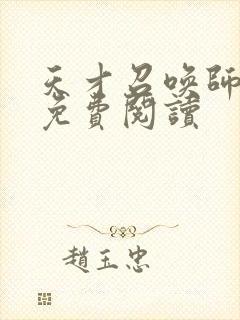 天才召喚師
免費閱讀
趙玉忠